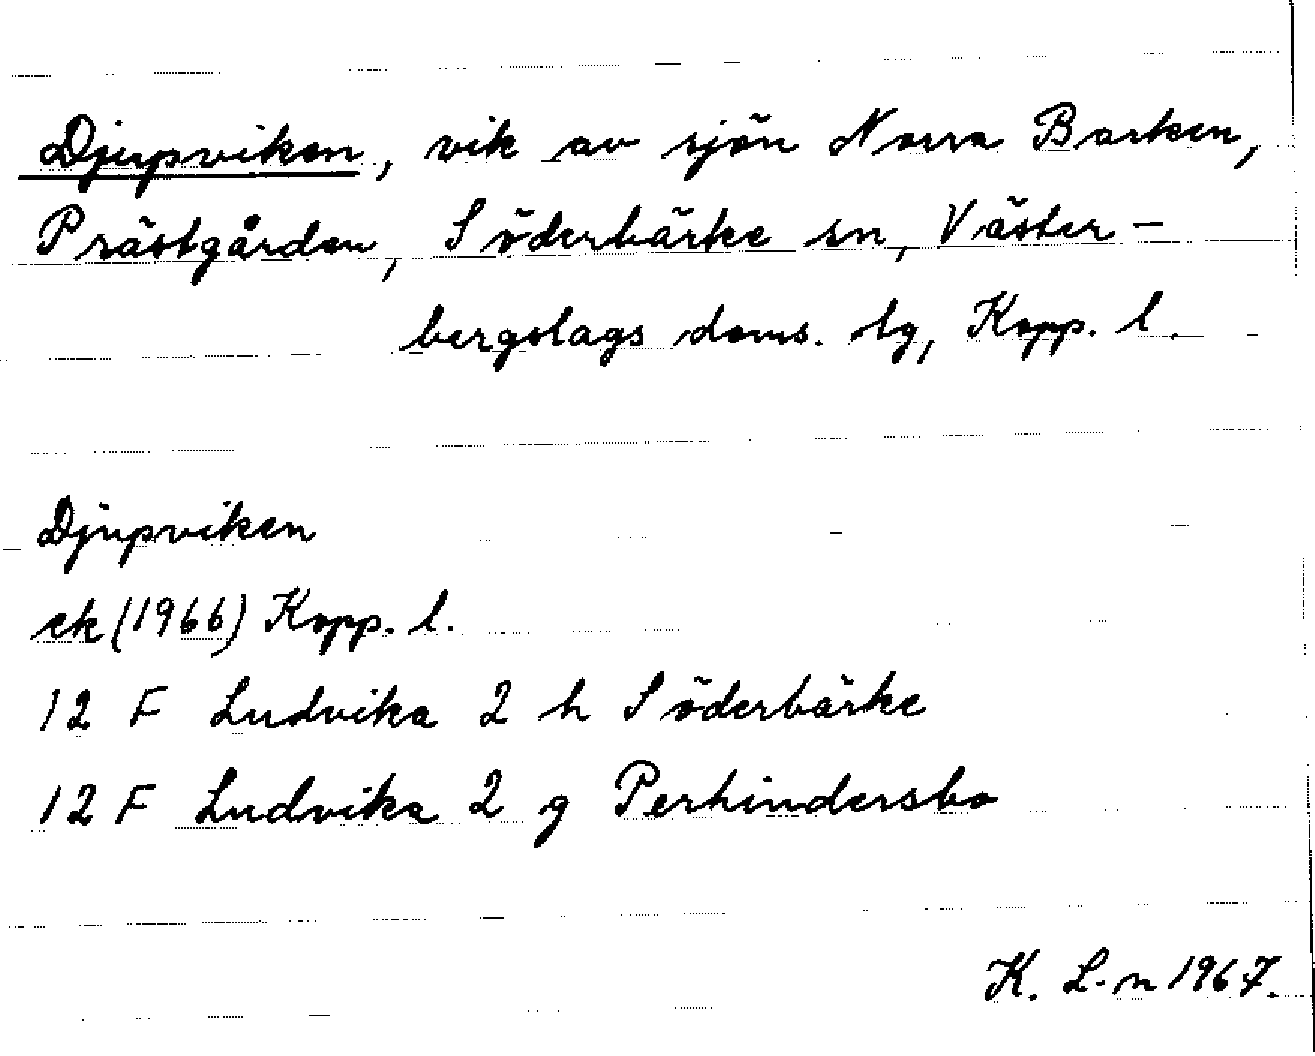 Djupviken, vik av sjön Norra Barken,
Prästgården, Söderbärke sn, Väster-
bergslags doms. tg, Kopp. l.
Djupviken
ek (1966) Kopp. l.
12 F Ludvika 2 h Söderbärke
12 F Ludvika 2 g Perhindersbo
K. L-n 1967.